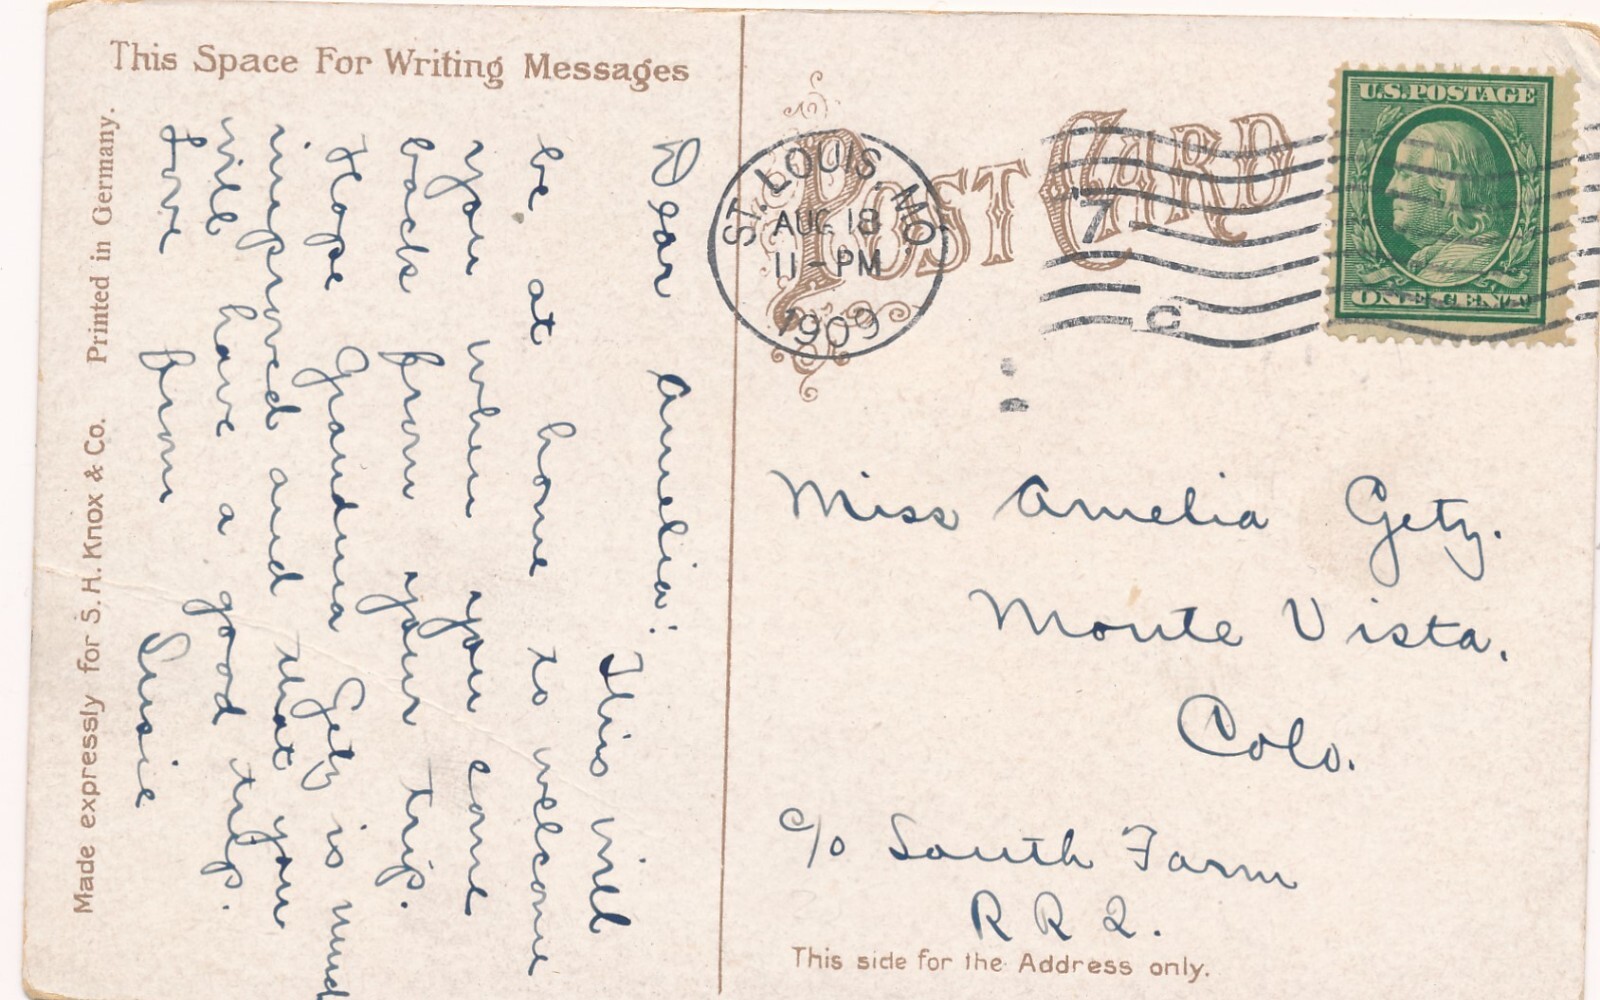 This Space For Writing Messages
Made expressly for S. H. Knox & Co. Printed in Germany.
Dear Amelia:
This will
be at home to welcome
you when you come
back from your trip.
Hope Grandma Getz is much
improved and that you
will have a good trip.
Love from Susie
POST CARD
ST. LOUIS, MO.
AUG 18
11-PM
1909
7
C
U.S. POSTAGE
ONE CENT
Miss Amelia Getz.
Monte Vista.
Colo.
c/o South Farm
R R 2.
This side for the Address only.